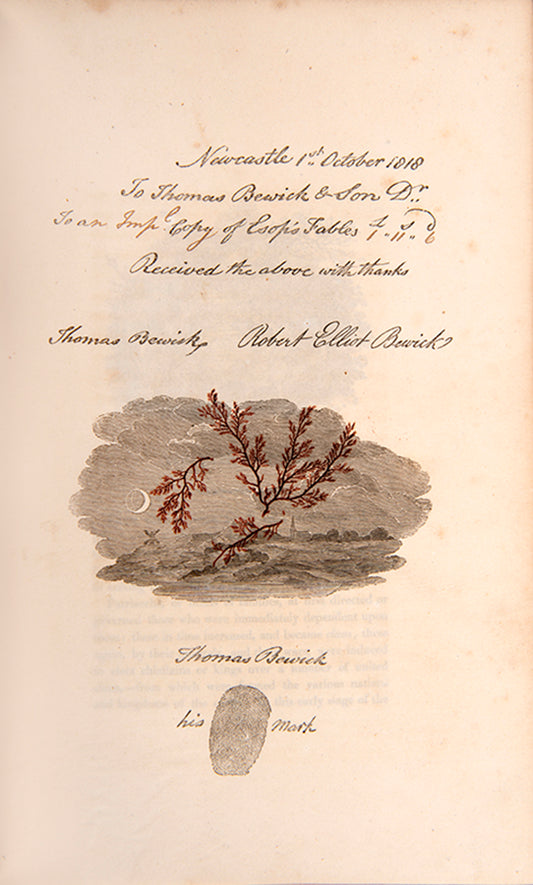 Newcastle 1st October 1818
To Thomas Bewick & Son Dr.
To an Impl. Copy of Esop's Fables £ 1 „ s 11 „ d 6
Received the above with thanks
Thomas Bewick Robert Elliot Bewick
Thomas Bewick
his mark